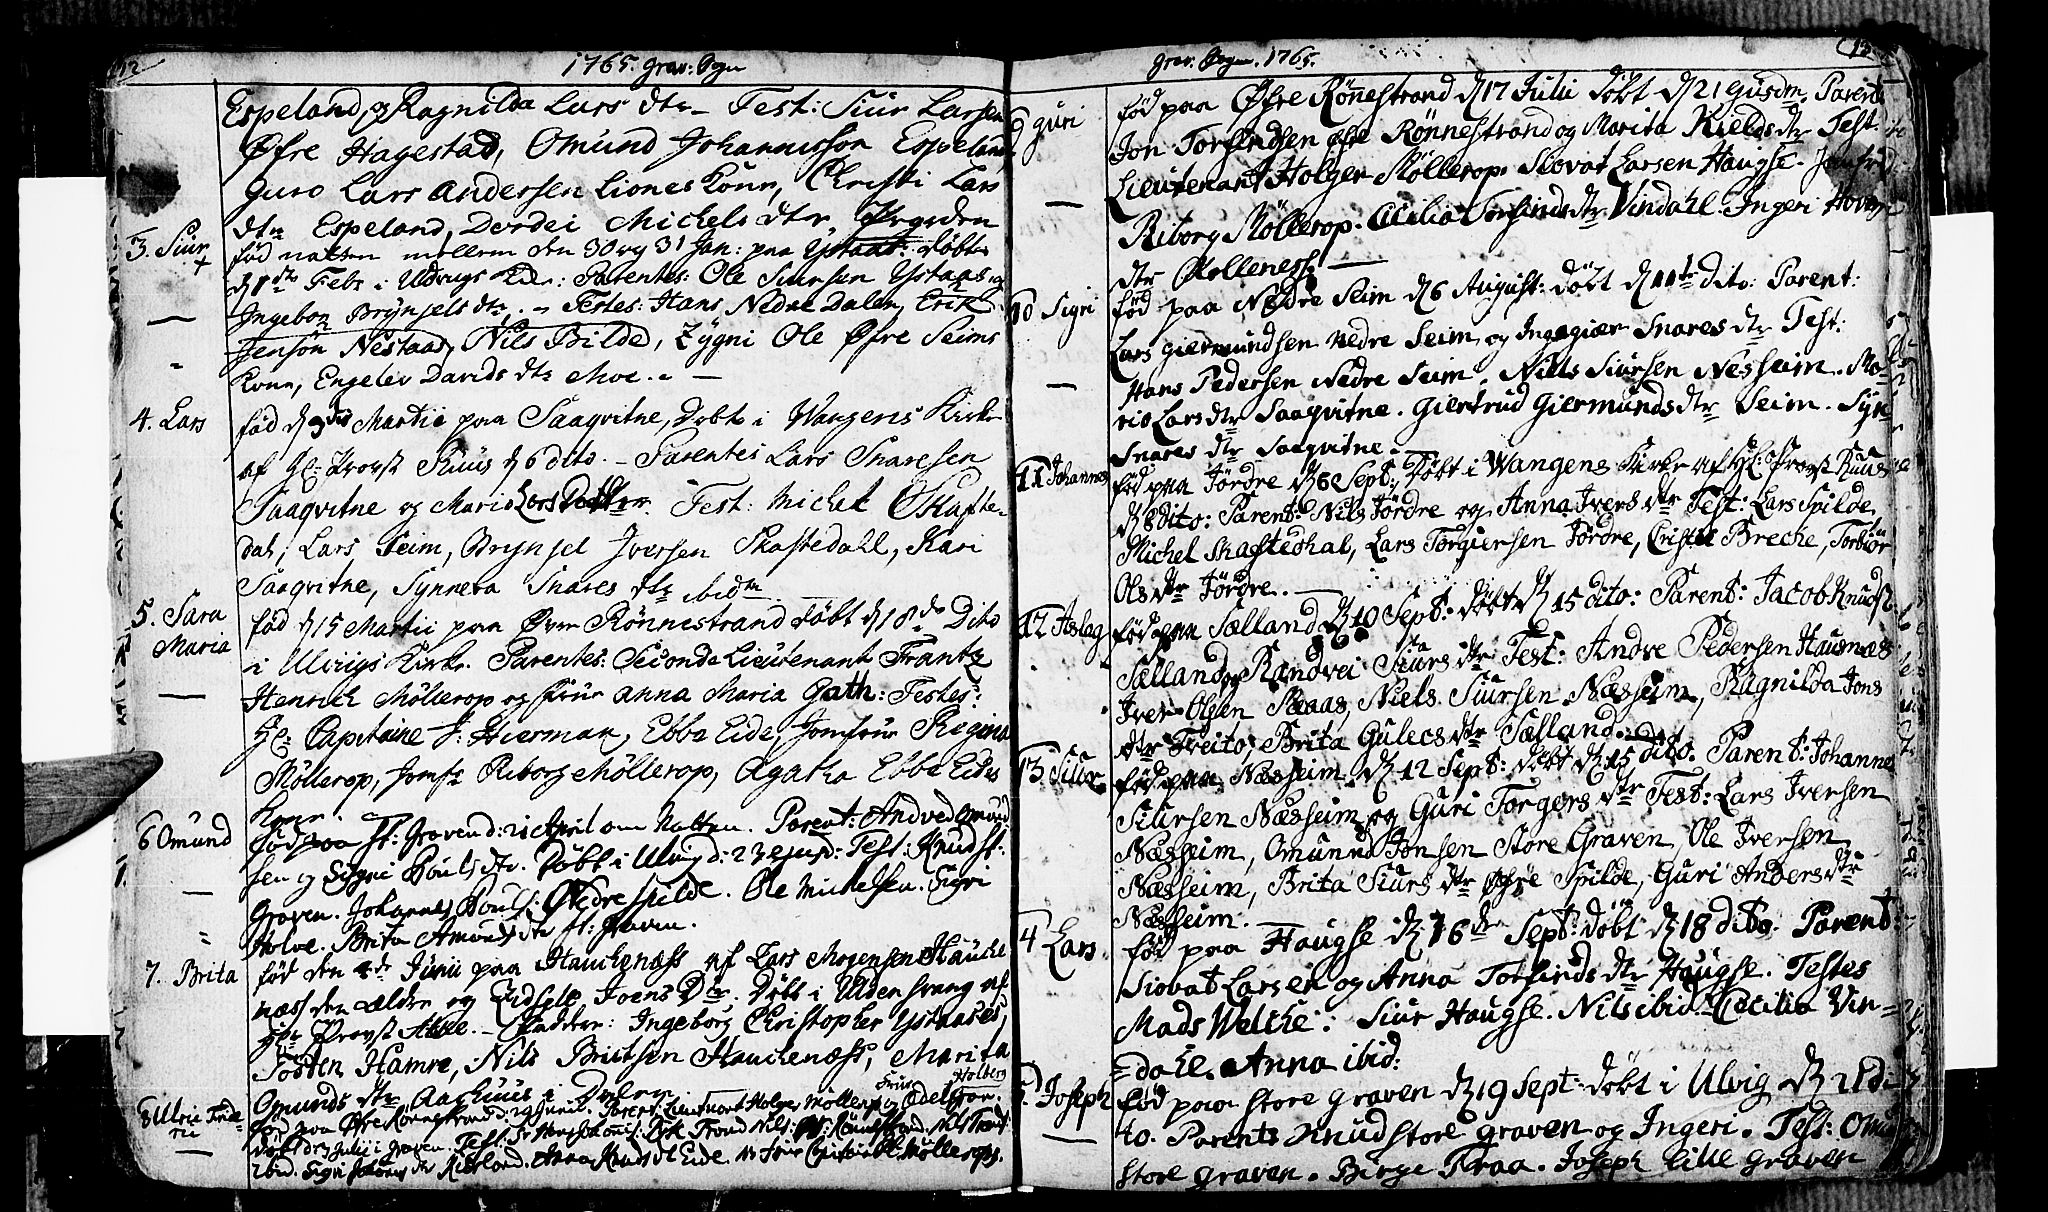 1765. Grav: Sogn
Espeland, og Ragnilda Lars dtr – Test: Siur Larsen
Øfre Hagestad, Omund Johannisson Espeland,
Guro Lars Andersen Liones Konn, Christi Lars
dtr Espeland, Dordei Michels dtr
3. Siur
fød natten mellem den 30 og 31 Jan: paa Ystaas. døbt
d 1ste Febr i Ulvigs Parentes: Ole Siursen Ystaas og
Ingebor Brynjels dtr. – Testes: Hans Nedre Dalen, Erik
Jenson Nestaad, Nils Bilde, Zygni Ole Øfre Seims
Konn, Engelev Davids dtr Moe. –
4. Lars
fød d 3die Martii paa Saaqvitne, Døbt i Wangens Kirke
af Hr: Provst Ruus d 6 dito. – Parentes Lars Snaresen
Saaqvitne og Mari Lars Datter. Test: Michel Skafte-
dal, Lars Seim, Brynjel Iversen Skaftedahl, Kari
Saaqvitne, Synneva Snares dtr ibidm
5. Sara
Maria
fød d 15 Martii paa Øvre Rönnestrand døbt d 18de Dito
i Ulvigs Kirke. Parentes: Seconde Lieutenant Frantz
Henrich Möllerop og Frue Anna Maria Gath: Testes:
Hr: Capitaine J: Hierman, Ebbe Eide, Jomfrue Regina
Möllerop, Jomfr Riborg Möllerop, Agatha Ebbe Eides
Konn.
6 Omund
fød paa St: Graven d: 21 April om Natten. Parent: Andved Omund
sen og Sigri Pouls dtr. Døbt i Ulvig d: 23 ejusd: Test: Knud St:
Graven. Johannes Pouls: Nedre Spilde. Ole Michelsen. Sigri
Holve. Brita Amunds dtr St: Graven.
7. Brita
fød den 4de Junii paa Hauckenæss af Lars Mogensen Haucke
næss den ældre og Eidsele Joens Dtr. Døbt i Uldensvang af
Hr Provst Atke. – Faddere: Ingeborg Christopher Ystaases,
Tosten Hamre, Nils Britsen Hauckenæss, Marita
Omunds dtr Aarhuus i
8 Ulric Fride-
ric
fød paa Øfre Rønnestrand d: 29 Junii. Parent Lieutnant Holger Möllerop og Frue Edel Holberg
døbt d 7 Julii i Graven. Test: Nils Trond
ibid. Sigri Kierland. Anna Knuds dt Eide. Möllerops.
Grav. Sogn. 1765.
guri
fød paa Øfre Rönestrand d 17 Julii døbt d 21 Parente
Jon Torfindsen øfre Rønnestrand og Marita Kields dtr Test
Lieutenant Holger Möllerop. Siovat Larsen Haugse. Jomfr
Riborg Möllerop. Cicilia Torfinds dtr Vindahl. Ingeri
dtr Kolleness –
10 Sigri
fød paa Nedre Seim d 6 August: døbt d 11te dito: Parent:
Lars Giermundsen nedre Seim og Ingegiær Snares dtr Test:
Hans Pedersen Nedre Seim. Nills Siursen Nesseim. Ma-
ria Lars dtr Saaqvitne. Giertrud Giermunds dtr Seim. Syn
Snares dtr Saaqvitne.
11 Johannes
fød paa Jördre d 6 Sept: Døbt i Wangens Kirke af Hr: Provst Ruus
d 8 dito: Parent: Nils Jördre og Anna Ivers dtr Test: Lars Spilde,
Michel Skafteshal, Lars Torgiersen Jördre, Cristi Breche, Torbiör
Ols dtr Jördre. –
12 Aslag
fød paa Sælland d 10 Sept: døbt d 15 dito: Parent: Jacob Knuds
Sælland og Randvei Siurs dtr Test: Andve Pedersen Hausnæs
Iver Olsen Skaas, Niels Siursen Næsseim, Ragnilda Jons
dtr Freito, Brita Gulecs dtr Sælland.
13 Siur
fød paa Næsheim d 12 Sept: døbt d 15 dito. Parent: Johannes
Siursen Næsheim og Guri Torgers dtr Test: Lars Iversen
Næsheim, Omund Jonsen Store Graven, Ole Iversen
Næsheim, Brita Siurs dtr Øfre Spilde, Guri Anders dtr
Næsheim.
4 Lars
fød paa Haugse d 16de Sept: døbt d 18 dito. Parent:
Siovat Larsen og Anna Torfinds dtr Haugse. Testes
Mads Welche: Siur Haugse. Nils ibid. Cecilia Vin-
dahl. Anna ibid:
5. Joseph
fød paa store graven d 19 Sept: døbt i Ulvig d 21 di-
to. Parents Knud store graven og Ingeri. Test: Omu
store graven. Birge Traa. Joseph lille graven